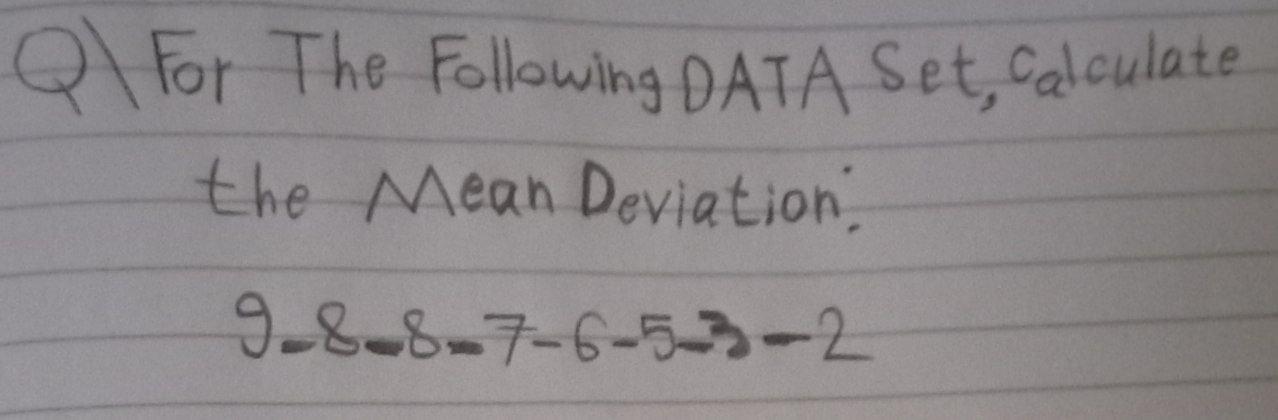 Q\ For The Following DATA Set, Calculate
the Mean Deviation:
9-8-8-7-6-5-3-2